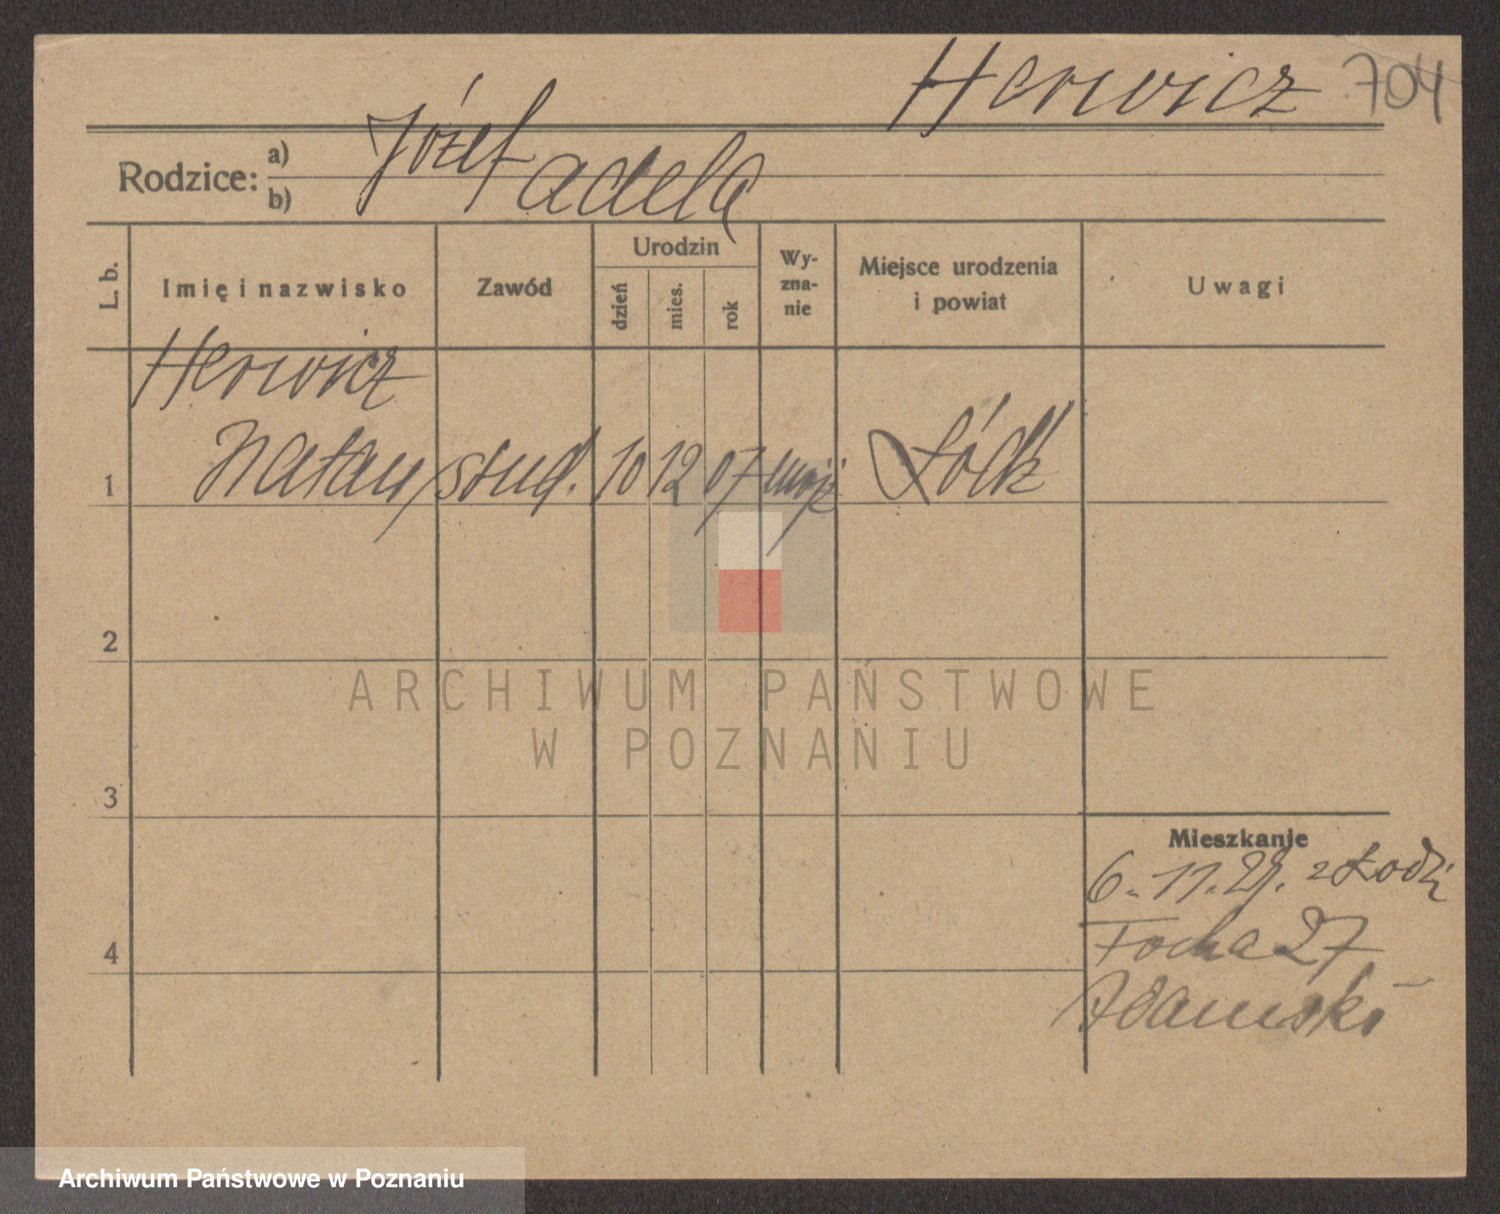 Herwicz 704
Rodzice: a) Józef
b) Adela
L. b.
Imię i nazwisko
Zawód
Urodzin
dzień
mies.
rok
Wy-
zna-
nie
Miejsce urodzenia
i powiat
Uwagi
Herwicz
1 Natan stud. 10 12 07 mojż Łódź
2
3
4
Mieszkanie
6. 11. 29. z Łodzi
Focha 27
Adamski
ARCHIWUM PAŃSTWOWE
W POZNANIU
Archiwum Państwowe w Poznaniu